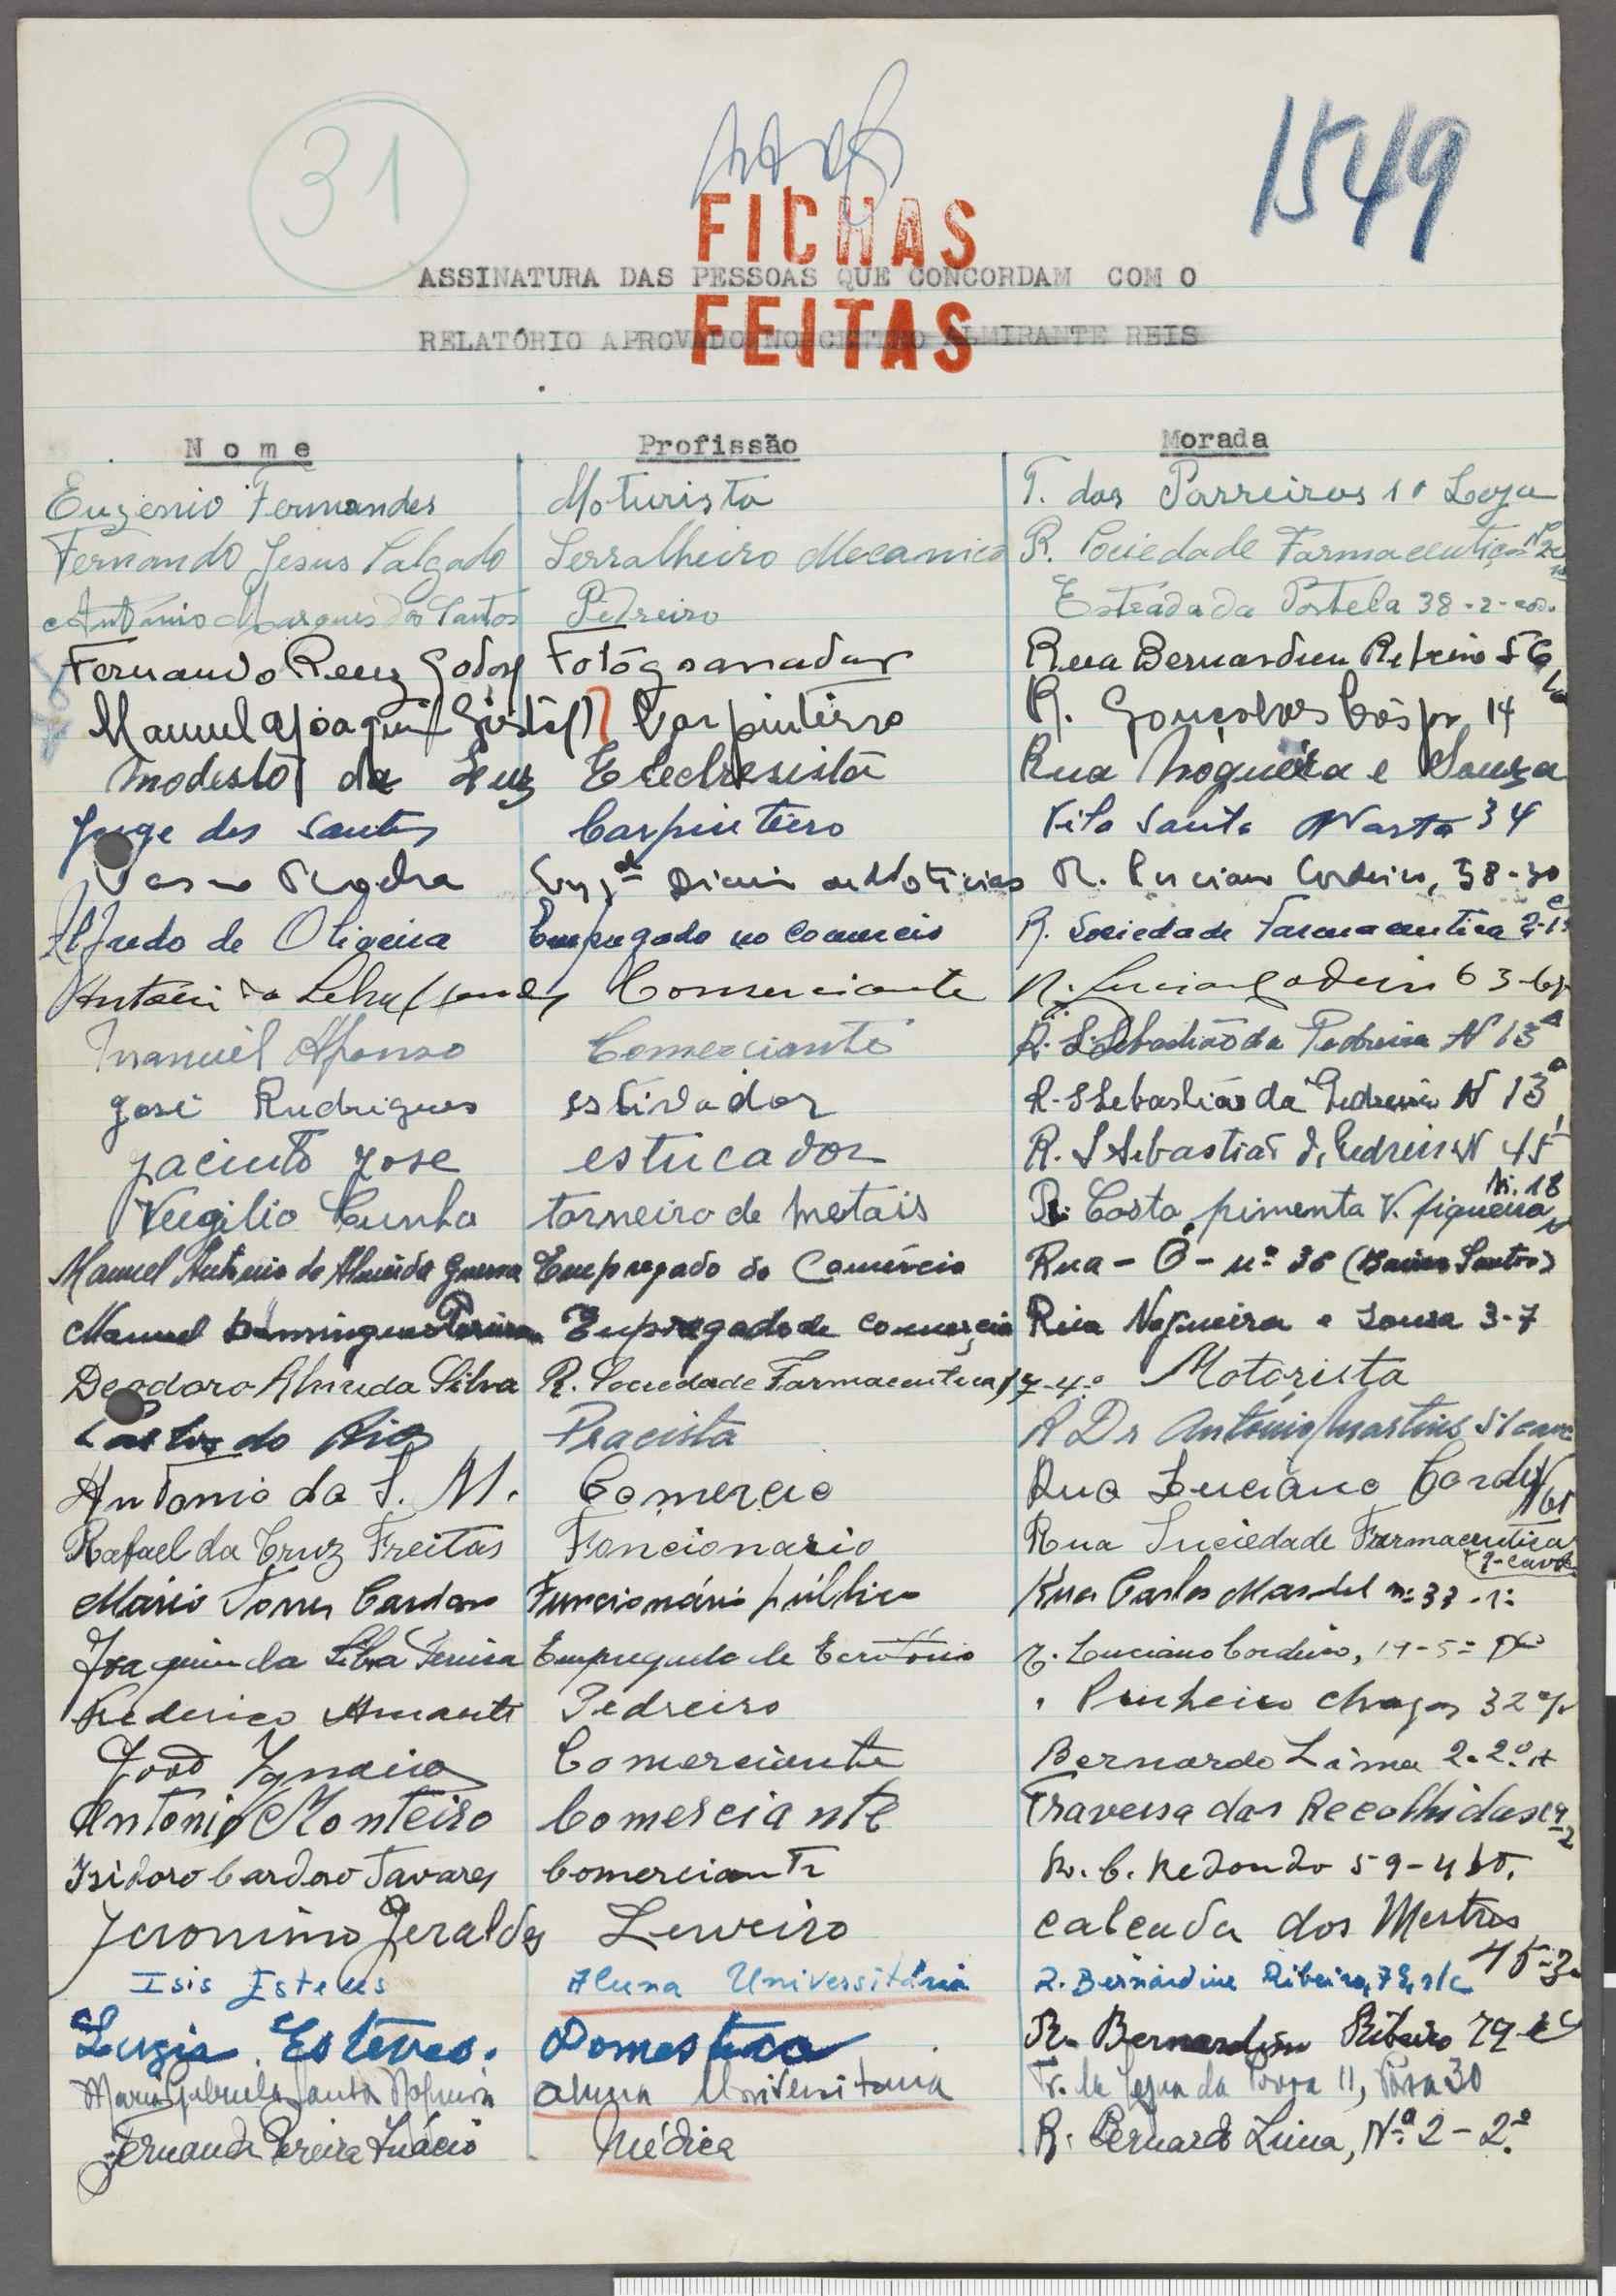 31
1549
FICHAS
ASSINATURA DAS PESSOAS QUE CONCORDAM COM O
FEITAS
RELATÓRIO APROVADO NO CENTRO ALMIRANTE REIS
Nome Profissão Morada
Eugenio Fernandes Moturista T. das Parreiras 10 Loja
Fernando Jesus Salgado Serralheiro Mecanico R. Sociedade Farmaceutica
António Marques dos Santos Pedreiro Estrada da Portela 38-2-
Fernando Godoy Fotógravador Rua Bernardim Ribeiro 56
Manuel Joaquim Carpinteiro R. Gonçalves Crespo, 14
Modesto da Luz Electresista Rua Nogueira e Souza
Jorge dos Santos Carpinteiro Vila Santa Marta 34
Diario de Noticias R. Luciano Cordeiro, 38-
Alfredo de Oliveira Empregado no Comercio R. Sociedade Farmaceutica
Comerciante R. Luciano Cordeiro 63
Manuel Afonso Comerciante R. S. Sebastião da Pedreira N 13 A
José Rudrigues estivador R. S Sebastião da Pedreira N 13
Jacinto Jose estucador R. S Sebastião d. Pedreira N 45
Vergilio Cunha torneiro de metais R. Costa pimenta V. figueira Ni. 18
Manuel Antonio de Almeida Guerra Empregado do Comércio Rua - O - nº 30 (Bairro Santos)
Manuel Domingues Pereira Empregado de Comercio Rua Nogueira e Sousa 3-7
Deodoro Almeida Silva R. Sociedade Farmaceutica 17-4.º Motorista
do Rio Pracista R Dr António Martins 51 cave
Antonio da S. M. Comercio Rua Luciano Cordeiro 61
Rafael da Cruz Freitas Foncionario Rua Suciedade Farmaceutica
Mário Torres Cardoso Funcionário público Rua Carlos Mardel nº 33-1º
Joaquim da Silva Pereira Empregado de Escritório R. Luciano Cordeiro, 14-5º
Frederico Amante Pedreiro Pinheiro Chagas 32
João Ygnacio Comerciante Bernardo Lima 2-2º
Antonio Monteiro Comerciante Travessa das Recolhidas
Isidoro Cardoso Tavares Comerciante R. C. Redondo 59-4
Jeronimo Geraldes calcada dos Mestres
45-3
Isis Esteves Aluna Universitária R. Bernardine Ribeiro, 79, r/c
Lugia Esteves. Domestica R. Bernardim Ribeiro 79
Maria Gabriela Santa Nogueira aluna Universitaria
Fernanda Pereira Inácio Médica R. Bernardo Lima, Nº 2-2º